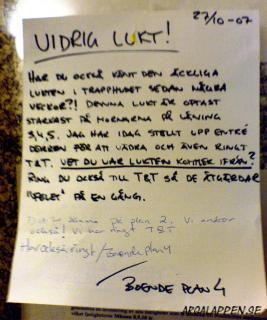 27/10-07
VIDRIG LUKT!
HAR DU OCKSÅ KÄNT DEN ÄCKLIGA
LUKTEN I TRAPPHUSET SEDAN NÅGRA
VECKOR?! DENNA LUKT ÄR OFTAST
STARKAST PÅ MORNARNA PÅ VÅNING
3,4,5. JAG HAR IDAG STÄLLT UPP ENTRÉ
DÖRREN FÖR ATT VÄDRA OCH ÄVEN RINGT
T&T. VET DU VAR LUKTEN KOMMER IFRÅN?
RING DU OCKSÅ TILL T&T SÅ DE ÅTGÄRDAR
"FELET" PÅ EN GÅNG.
plan 2. Vi
också! Vi har ringt T&T
Har också ringt/Boende plan 4
/BOENDE PLAN 4
ARGALAPPEN.SE